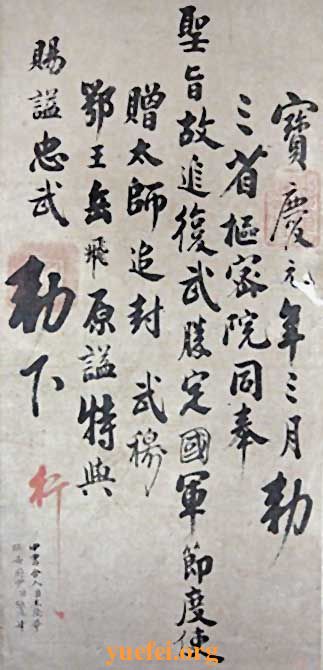 寶慶元年三月勅
三省樞密院同奉
聖旨故追復武勝定國軍節度使
贈太師追封 武穆
鄂王岳飛原謚特與
賜謚忠武
勅下
行
yuefei.org